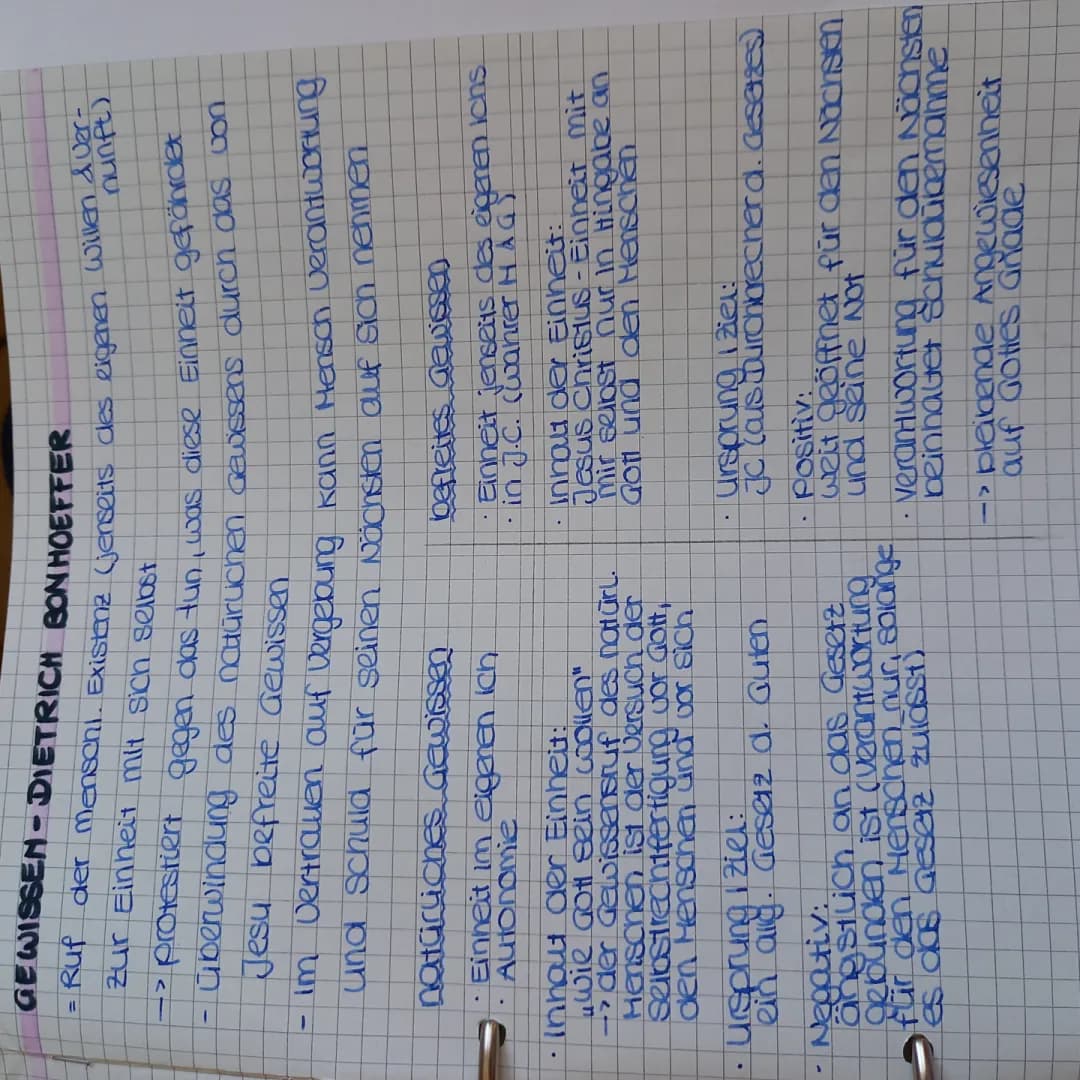 GEWISSEN - DIETRICH BONHOEFFER
= Ruf der menschl. Existenz (jenseits des eigenen Willen & Ver-
nunft)
zur Einheit mit sich selbst
--> protestiert gegen das tun, was diese Einheit gefährdet
- Überwindung des natürlichen Gewissens durch das von
Jesu befreite Gewissen
- Im Vertrauen auf Vergebung kann Mensch Verantwortung
und Schuld für seinen Nächsten auf sich nehmen
natürliches Gewissen
· Einheit im eigenen Ich
· Autonomie
· Inhalt der Einheit:
"wie Gott sein wollen"
--> der Gewissensruf des natürl.
Menschen ist der Versuch der
Selbstrechtfertigung vor Gott,
den Menschen und vor sich
· Ursprung / Ziel:
ein allg. Gesetz d. Guten
· Negativ:
ängstlich an das Gesetz
gebunden ist (Verantwortung
für den Menschen nur, solange
es das Gesetz zulässt)
befreites Gewissen
· Einheit jenseits des eigenen Ichs
· in J.C. (wahrer M & G)
· Inhalt der Einheit:
Jesus Christus - Einheit mit
mir selbst nur in Hingabe an
Gott und den Menschen
· Ursprung / Ziel:
JC (aus Durchbrecher d. Gesetzes)
· Positiv:
weit geöffnet für den Nächsten
und seine Not
· Verantwortung für den Nächsten
beinhaltet Schuldübernahme
--> bleibende Angewiesenheit
auf Gottes Gnade